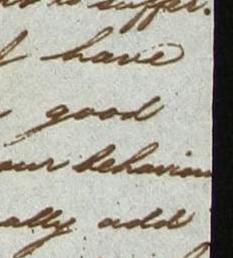 to suffer.
have
good
our behaviour
ally add